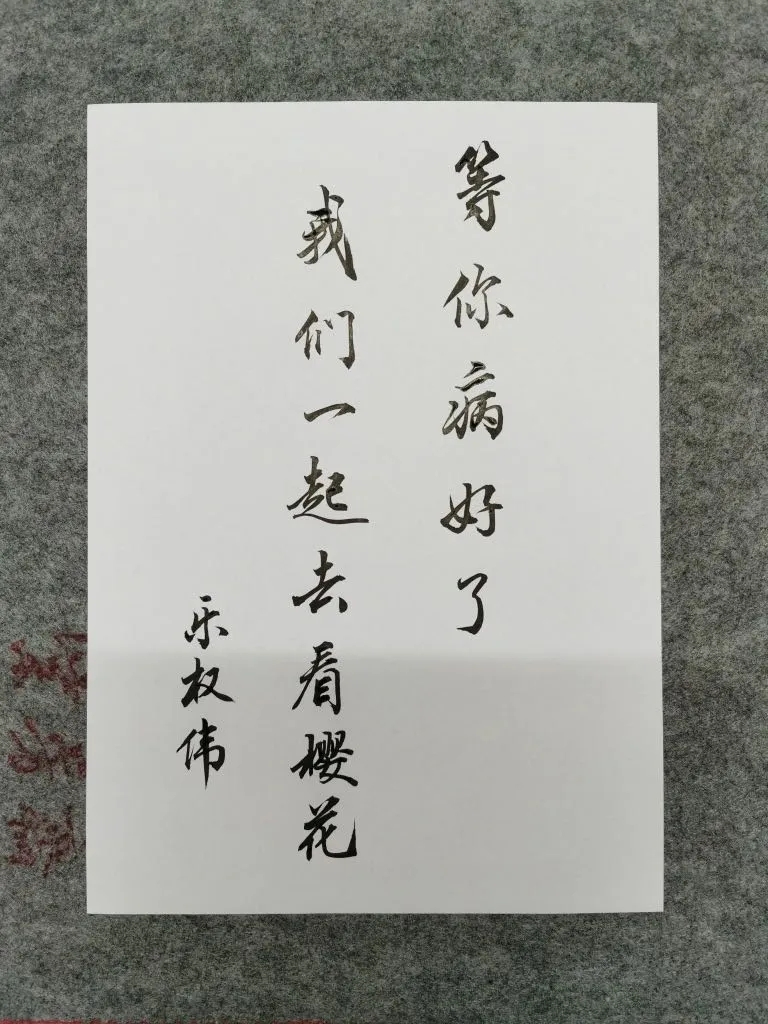 等你病好了
我们一起去看樱花
乐权伟